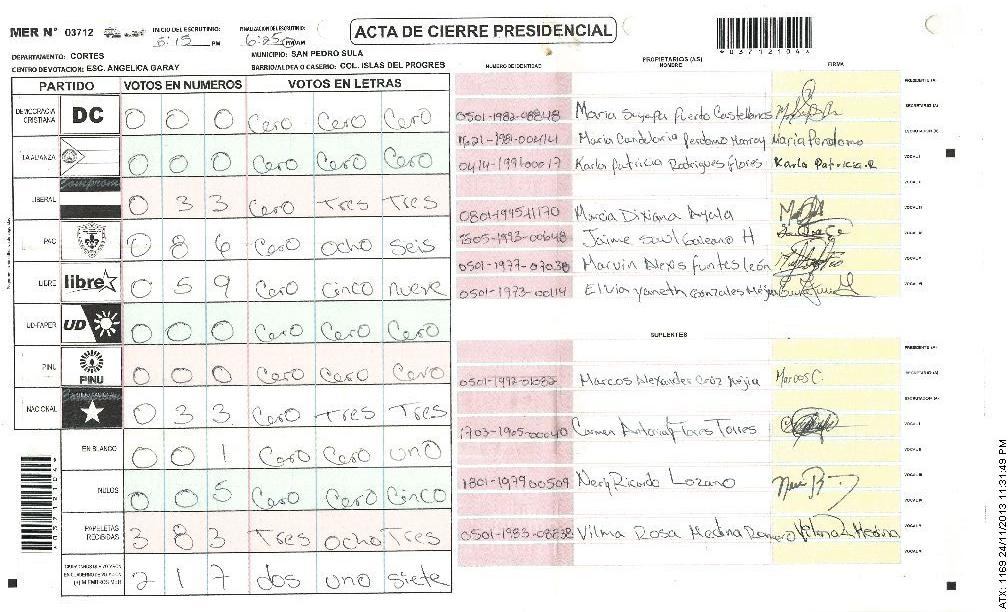 MER N° 03712
INICIO DEL ESCRUTINIO: 5:15 PM
FINALIZACION DEL ESCRUTINIO: 6:25 PM
ACTA DE CIERRE PRESIDENCIAL
DEPARTAMENTO: CORTES
MUNICIPIO: SAN PEDRO SULA
CENTRO DE VOTACION: ESC. ANGELICA GARAY
BARRIO/ALDEA O CASERIO: COL. ISLAS DEL PROGRES
PARTIDO VOTOS EN NUMEROS VOTOS EN LETRAS
DEMOCRACIA CRISTIANA DC 0 0 0 Cero Cero Cero
LA ALIANZA 0 0 0 Cero Cero Cero
LIBERAL 0 3 3 Cero Tres Tres
PAC 0 8 6 Cero ocho seis
LIBRE libre 0 5 9 Cero Cinco nueve
UD-FAPER UD 0 0 0 Cero Cero Cero
PINU PINU 0 0 0 Cero Cero Cero
NACIONAL 0 3 3 Cero Tres Tres
EN BLANCO 0 0 1 Cero Cero uno
NULOS 0 0 5 Cero Cero Cinco
PAPELETAS RECIBIDAS 3 8 3 Tres ocho Tres
2 1 7 dos uno siete
PROPIETARIOS (AS)
NUMERO DE IDENTIDAD NOMBRE FIRMA
PRESIDENTE (A)
SECRETARIO (A)
0501-1982-08848 Maria Suyapa Puerto Castellanos
ESCRUTADOR (A)
Maria Candelaria Perdomo Maria Perdomo
VOCAL I
Karla Patricia Rodrigues flores Karla Patricia R
VOCAL II
Marcia Dixiana Ayala
Jaime Saul Galeano H
0501-1977-07038 Marvin Alexis funtes león
0501-1973-00114 Elvia Yaneth Gonzales Mejia
SUPLENTES
PRESIDENTE (A)
SECRETARIO (A)
Marcos Alexander Cruz Mejia Marcos C.
ESCRUTADOR (A)
Carmen Antonio Flores Torres
VOCAL I
VOCAL II
1801-1979-00509 Nery Ricardo Lozano
VOCAL III
0501-1983-08838 Vilma Rosa Medina Romero Vilma R Medina
*03712104*
ATX: 1169 24/11/2013 11:31:49 PM